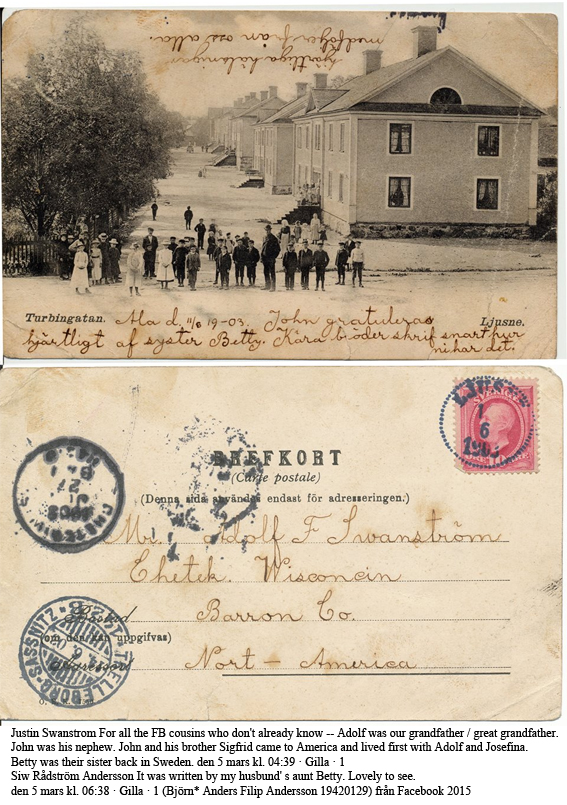 hjärtliga hälsningar
medföljer från oss alla.
Turbingatan.
Ljusne.
Ala d. 11/6 19-03. John gratuleras
hjärtligt af syster Betty. Kära broder skrif snart hur
ni har det.
LJUSNE
1
6
1903
SVERIGE
BREFKORT
(Carte postale)
(Denna sida användes endast för adresseringen.)
Mr. Adolf F Swanström
Chetek. Wisconcin
Bostad
Barron Co.
(om den kan uppgifvas)
Nort - America
TRELLEBORG-SASSNITZ
Justin Swanstrom For all the FB cousins who don't already know -- Adolf was our grandfather / great grandfather.
John was his nephew. John and his brother Sigfrid came to America and lived first with Adolf and Josefina.
Betty was their sister back in Sweden. den 5 mars kl. 04:39 · Gilla · 1
Siw Rådström Andersson It was written by my husbund' s aunt Betty. Lovely to see.
den 5 mars kl. 06:38 · Gilla · 1 (Björn* Anders Filip Andersson 19420129) från Facebook 2015